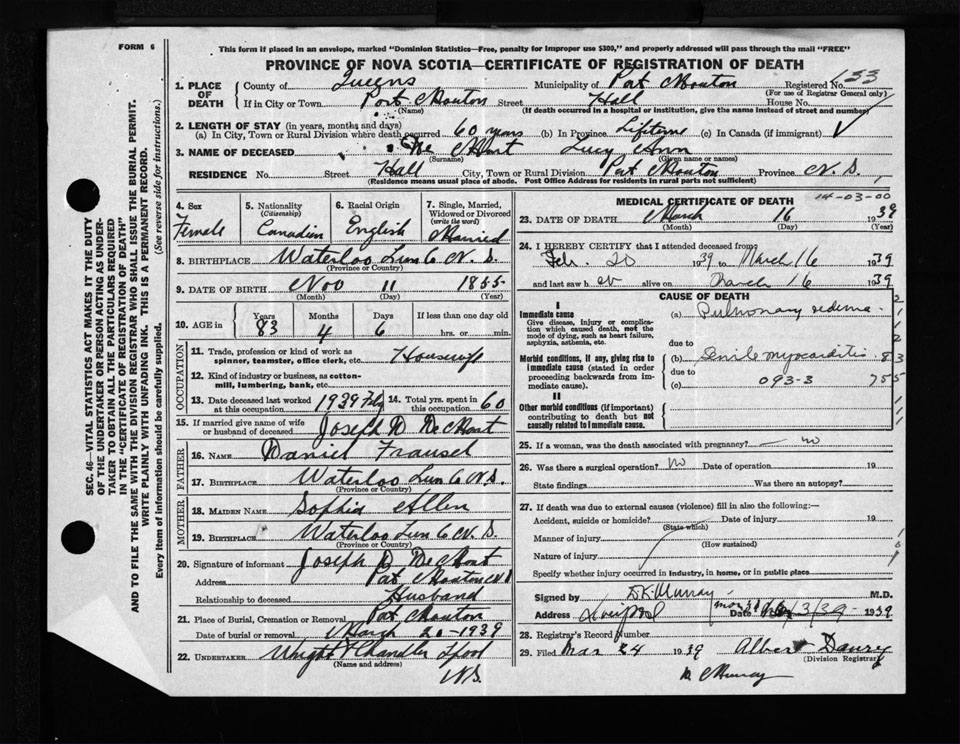 FORM 6
This form if placed in an envelope, marked "Dominion Statistics—Free, penalty for improper use $300," and properly addressed will pass through the mail "FREE"
PROVINCE OF NOVA SCOTIA—CERTIFICATE OF REGISTRATION OF DEATH
1. PLACE OF DEATH County of Queens Municipality of Port Mouton Registered No. 153
(For use of Registrar General only)
If in City or Town Port Mouton Street Hall House No.
(Name) (If death occurred in a hospital or institution, give the name instead of street and number)
2. LENGTH OF STAY (in years, months and days)
(a) In City, Town or Rural Division where death occurred 60 years (b) In Province Lifetime (c) In Canada (if immigrant)
3. NAME OF DECEASED Lucy Ann
(Surname) (Given name or names)
RESIDENCE No. Street Hall City, Town or Rural Division Port Mouton Province N.S.
(Residence means usual place of abode. Post Office Address for residents in rural parts not sufficient)
4. Sex Female
5. Nationality (Citizenship) Canadian
6. Racial Origin English
7. Single, Married, Widowed or Divorced (write the word) Married
8. BIRTHPLACE Waterloo Lun Co N.S.
(Province or Country)
9. DATE OF BIRTH Nov 11 1855
(Month) (Day) (Year)
10. AGE in Years Months Days If less than one day old
83 4 6 hrs. or min.
OCCUPATION
11. Trade, profession or kind of work as spinner, teamster, office clerk, etc. Housewife
12. Kind of industry or business, as cotton-mill, lumbering, bank, etc.
13. Date deceased last worked at this occupation 1939 Feb
14. Total yrs. spent in this occupation 60
15. If married give name of wife or husband of deceased Joseph D
FATHER
16. NAME Daniel
17. BIRTHPLACE Waterloo Lun Co N.S.
(Province or Country)
MOTHER
18. MAIDEN NAME Sophia Allen
19. BIRTHPLACE Waterloo Lun Co N.S.
(Province or Country)
20. Signature of informant Joseph D
Address Port Mouton N S
Relationship to deceased Husband
21. Place of Burial, Cremation or Removal Port Mouton
Date of burial or removal March 20-1939
22. UNDERTAKER Wright & Chandler Lpool
(Name and address) N.S.
MEDICAL CERTIFICATE OF DEATH
14-03-00
23. DATE OF DEATH March 16 1939
(Month) (Day) (Year)
24. I HEREBY CERTIFY that I attended deceased from
Feb. 20 1939 to March 16 1939
and last saw h er alive on March 16 1939
CAUSE OF DEATH
I
Immediate cause
Give disease, injury or complication which caused death, not the mode of dying, such as heart failure, asphyxia, asthenia, etc.
(a) Pulmonary oedema
due to
Morbid conditions, if any, giving rise to immediate cause (stated in order proceeding backwards from immediate cause).
(b) Senile myocarditis 83
due to
(c) 093-3 755
II
Other morbid conditions (if important) contributing to death but not causally related to immediate cause.
25. If a woman, was the death associated with pregnancy? no
26. Was there a surgical operation? No Date of operation 19
State findings Was there an autopsy?
27. If death was due to external causes (violence) fill in also the following:—
Accident, suicide or homicide? Date of injury 19
(State which)
Manner of injury
(How sustained)
Nature of injury
Specify whether injury occurred in industry, in home, or in public place
Signed by D.K. Murray M.D.
Address Liverpool Date 1939
28. Registrar's Record Number
29. Filed Mar 24 1939 Albert
(Division Registrar)
Murray
SEC. 46—VITAL STATISTICS ACT MAKES IT THE DUTY OF THE UNDERTAKER OR PERSON ACTING AS UNDERTAKER TO OBTAIN ALL THE PARTICULARS REQUIRED IN THE "CERTIFICATE OF REGISTRATION OF DEATH"
AND TO FILE THE SAME WITH THE DIVISION REGISTRAR WHO SHALL ISSUE THE BURIAL PERMIT.
WRITE PLAINLY WITH UNFADING INK. THIS IS A PERMANENT RECORD.
Every item of information should be carefully supplied. (See reverse side for instructions.)